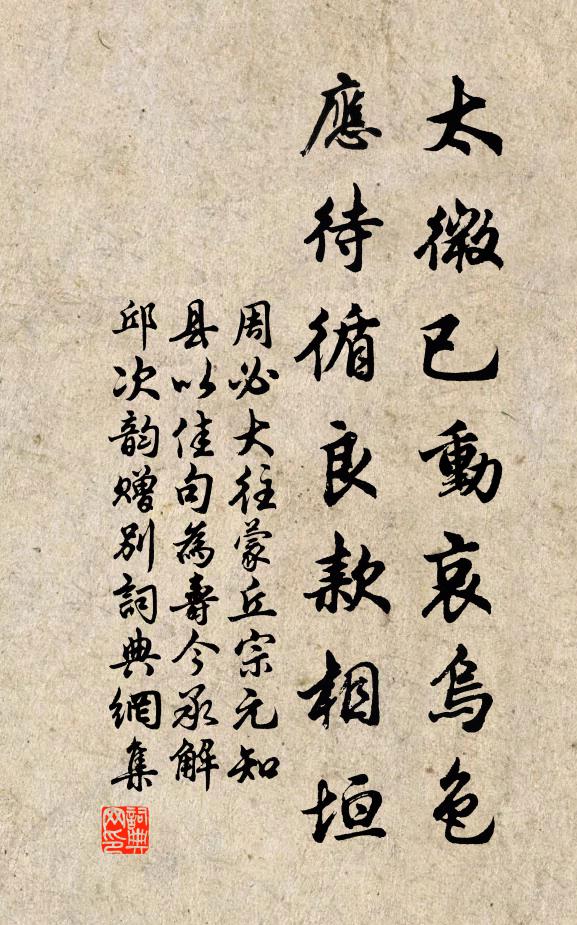 太微已動哀烏色
應待循良款相垣
周必大往蒙丘宗元知
县以佳句為壽今承解
邱次韵赠别詞典網集
詞典網印